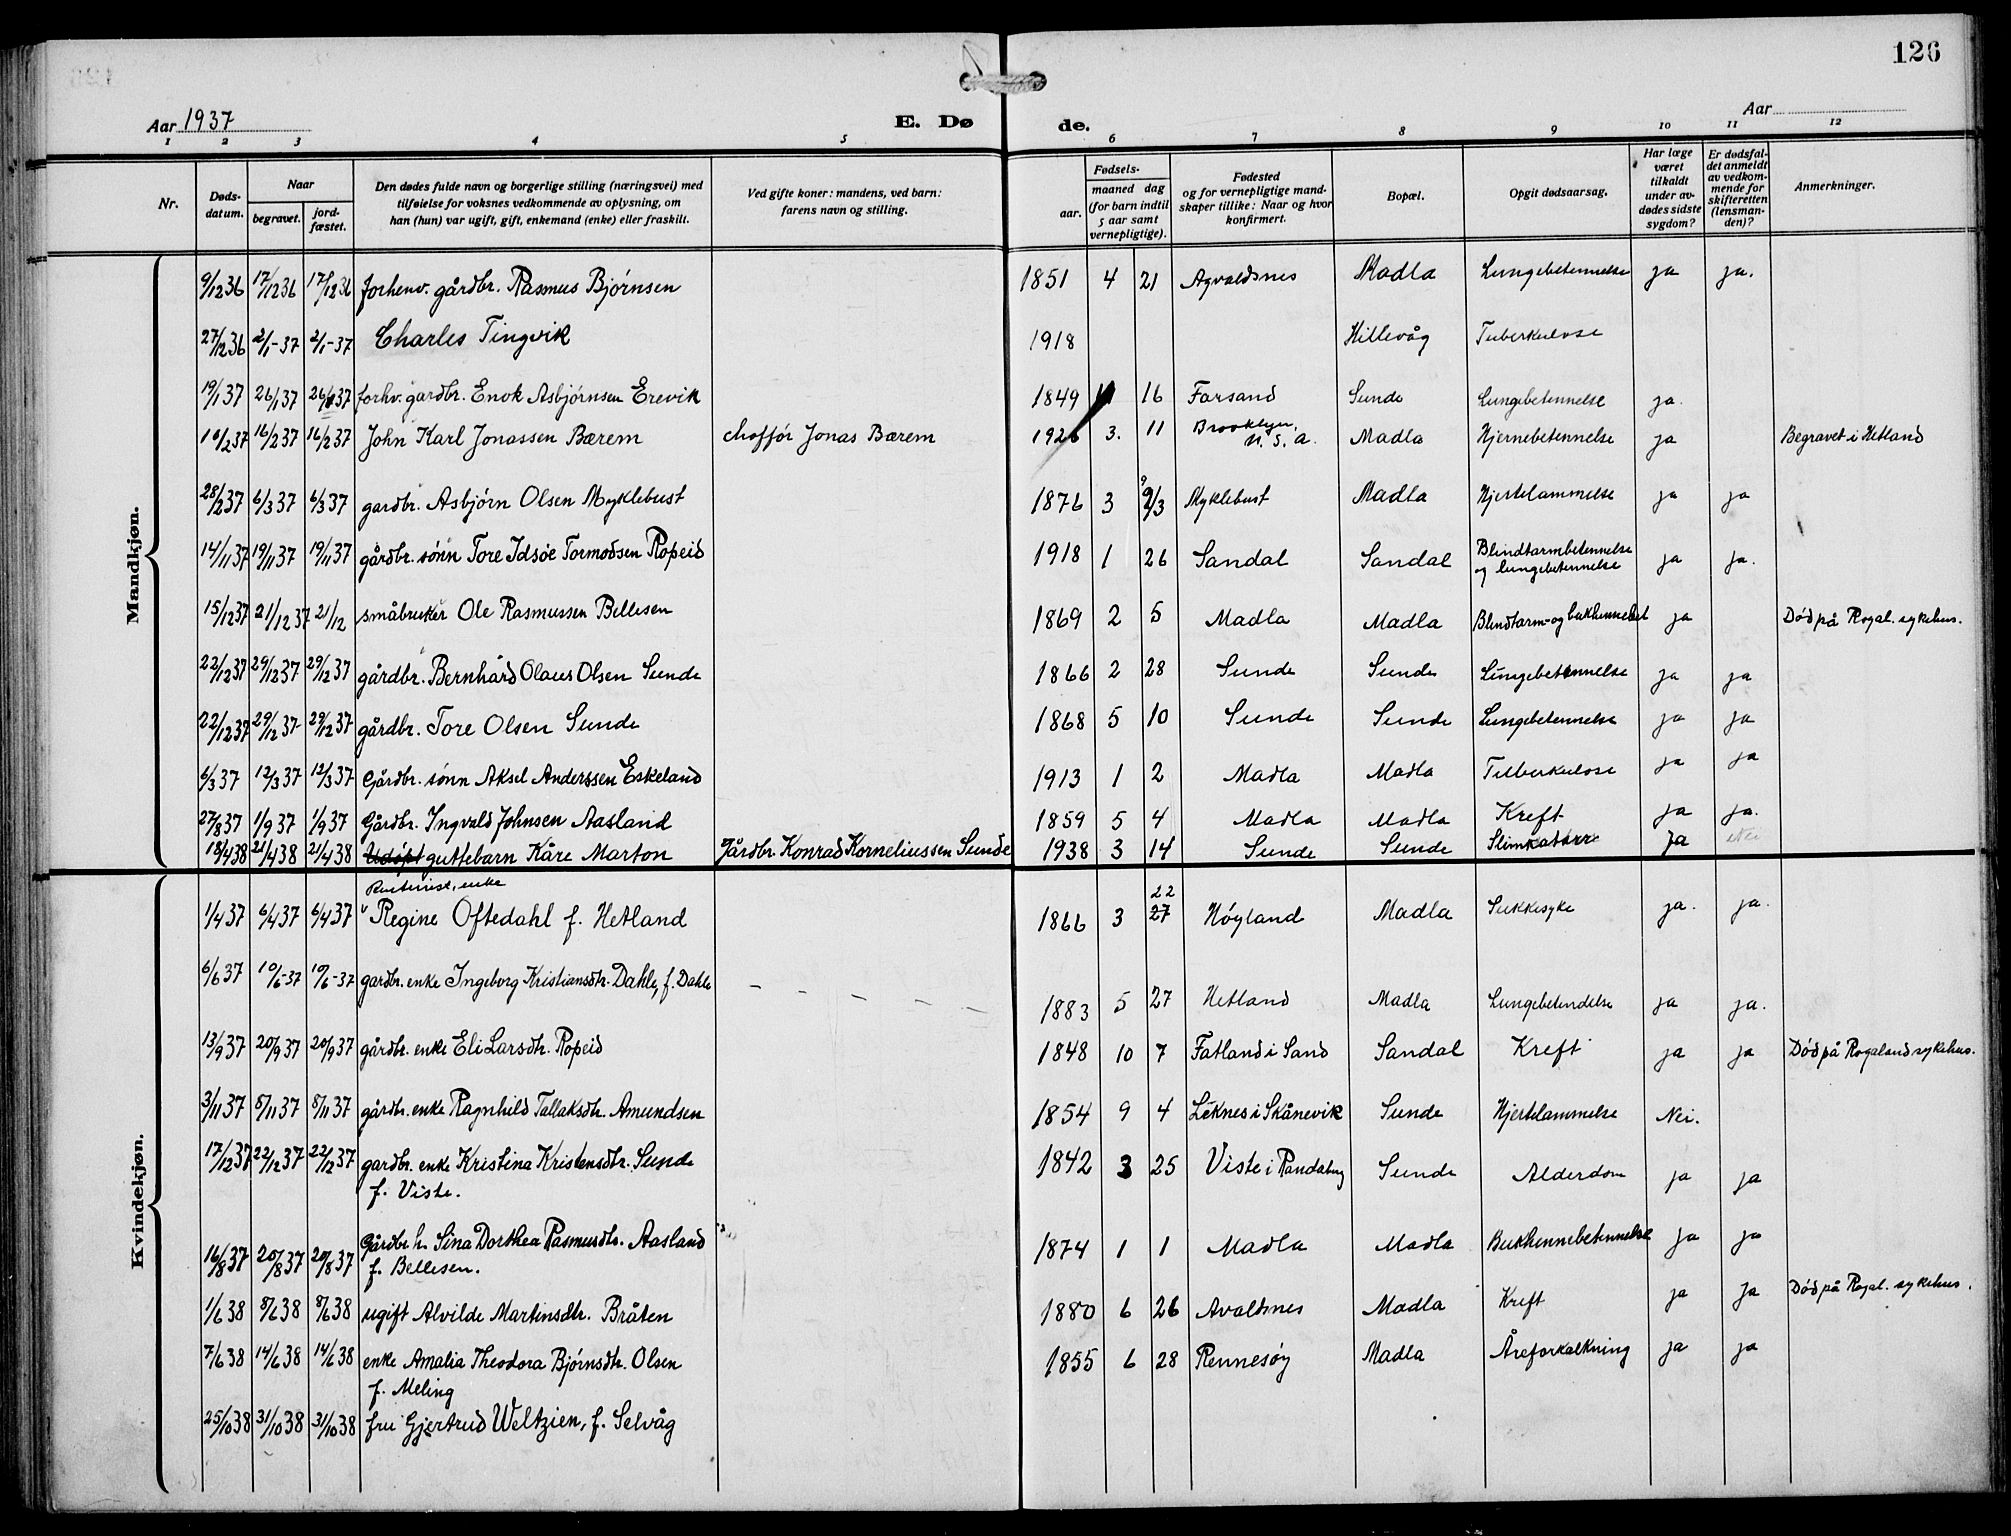 126
Aar 1937
E. Dø
de.
Aar
1 2 3 4 5 6 7 8 9 10 11 12
Nr.
Døds-
datum.
Naar
begravet.
jord-
fæstet.
Den dødes fulde navn og borgerlige stilling (næringsvei) med
tilføielse for voksnes vedkommende av oplysning, om
han (hun) var ugift, gift, enkemand (enke) eller fraskilt.
Ved gifte koner: mandens, ved barn:
farens navn og stilling.
Fødsels-
aar.
maaned dag
(for barn indtil
5 aar samt
vernepligtige).
Fødested
og for vernepligtige mand-
skaper tillike: Naar og hvor
konfirmert.
Bopæl.
Opgit dødsaarsag.
Har læge
været
tilkaldt
under av-
dødes sidste
sygdom?
Er dødsfal-
det anmeldt
av vedkom-
mende for
skifteretten
(lensman-
den)?
Anmerkninger.
Mandkjøn.
9/12 36 17/12 36 17/12 36 forhenv. gårdbr. Rasmus Bjørnsen 1851 4 21 Agvaldsnes Madla Lungebetennelse ja ja.
27/12 36 2/1-37 2/1-37 Charles Tingvik 1918 Hillevåg Tuberkulose
19/1 37 26/1 37 26/1 37 forhv. gardbr. Enok Asbjørnsen Erevik 1849 11 16 Farsand Sunde Lungebetennelse ja.
10/2 37 16/2 37 16/2 37 John Karl Jonassen Bærem chaffør Jonas Bærem 1926 3. 11 Brooklyn, U. S. A. Madla Hjernebetennelse ja Begravet i Hetland
28/2 37 6/3 37 6/3 37 gardbr. Asbjørn Olsen Myklebust 1876 3 9/3 Myklebust Madla Hjertelammelse ja ja
14/11 37 19/11 37 19/11 37 gårdbr. sønn Tore Idsøe Tormodsen Ropeid 1918 1 26 Sandal Sandal Blindtarmbetennelse
og lungebetennelse ja ja.
15/12 37 21/12 37 21/12 småbruker Ole Rasmussen Bellesen 1869 2 5 Madla Madla Blindtarm- og bukhinnebet ja Død på Rogal. sykehus.
22/12 37 29/12 37 29/12 37 gårdbr. Bernhard Olaus Olsen Sunde 1866 2 28 Sunde Sunde Lungebetennelse ja ja
22/12 37 29/12 37 29/12 37 gårdbr. Tore Olsen Sunde 1868 5 10 Sunde Sunde Lungebetennelse ja ja
6/3 37 12/3 37 12/3 37 Gårdbr. sønn Aksel Anderssen Eskeland 1913 1 2 Madla Madla Tuberkulose ja ja
27/8 37 1/9 37 1/9 37 Gårdbr. Ingvald Johnsen Aasland 1859 5 4 Madla Madla Kreft ja ja.
18/4 38 21/4 38 21/4 38 Udøpt guttebarn Kåre Marton Gårdbr. Konrad Korneliussen Sunde 1938 3 14 Sunde Sunde Slimkatarr Ja Nei
Kvindekjøn.
Rentenist, enke 22
1/4 37 6/4 37 6/4 37 Regine Oftedahl f. Hetland 1866 3 27 Høyland Madla Sukkesyke ja. ja.
6/6 37 10/6-37 10/6-37 gardbr. enke Ingeborg Kristiansdtr. Dahle, f. Dahle - - - - 1883 5 27 Hetland Madla Lungebetendelse ja ja.
13/9 37 20/9 37 20/9 37 gårdbr. enke Eli Larsdtr. Ropeid 1848 10 7 Fatland i Sand Sandal Kreft ja ja Død på Rogaland sykehus.
3/11 37 8/11 37 8/11 37 gårdbr. enke Ragnhild Tallaksdtr. Amundsen 1854 9 4 Leknes i Skånevik Sunde Hjertelammelse Nei.
17/12 37 22/12 37 22/12 37 gardbr. enke Kristina Kristensdtr. Sunde 1842 3 25 Viste i Randaberg Sunde Alderdom ja ja
f. Viste.
16/8 37 20/8 37 20/8 37 Gårdbr. h. Sina Dorthea Rasmusdtr. Aasland 1874 1 1 Madla Madla Bukhinnebetennelse ja ja
f. Bellesen.
1/6 38 8/6 38 8/6 38 ugift Alvilde Martinsdtr. Bråten 1880 6 26 Avaldsnes Madla Kreft ja ja Død på Rogal. sykehus.
7/6 38 14/6 38 14/6 38 enke Amalia Theodora Bjørnsdtr. Olsen 1855 6 28 Rennesøy Madla Åreforkalkning ja ja
f. Meling
25/10 38 31/10 38 31/10 38 fru Gjertrud Weltzien, f. Selvåg